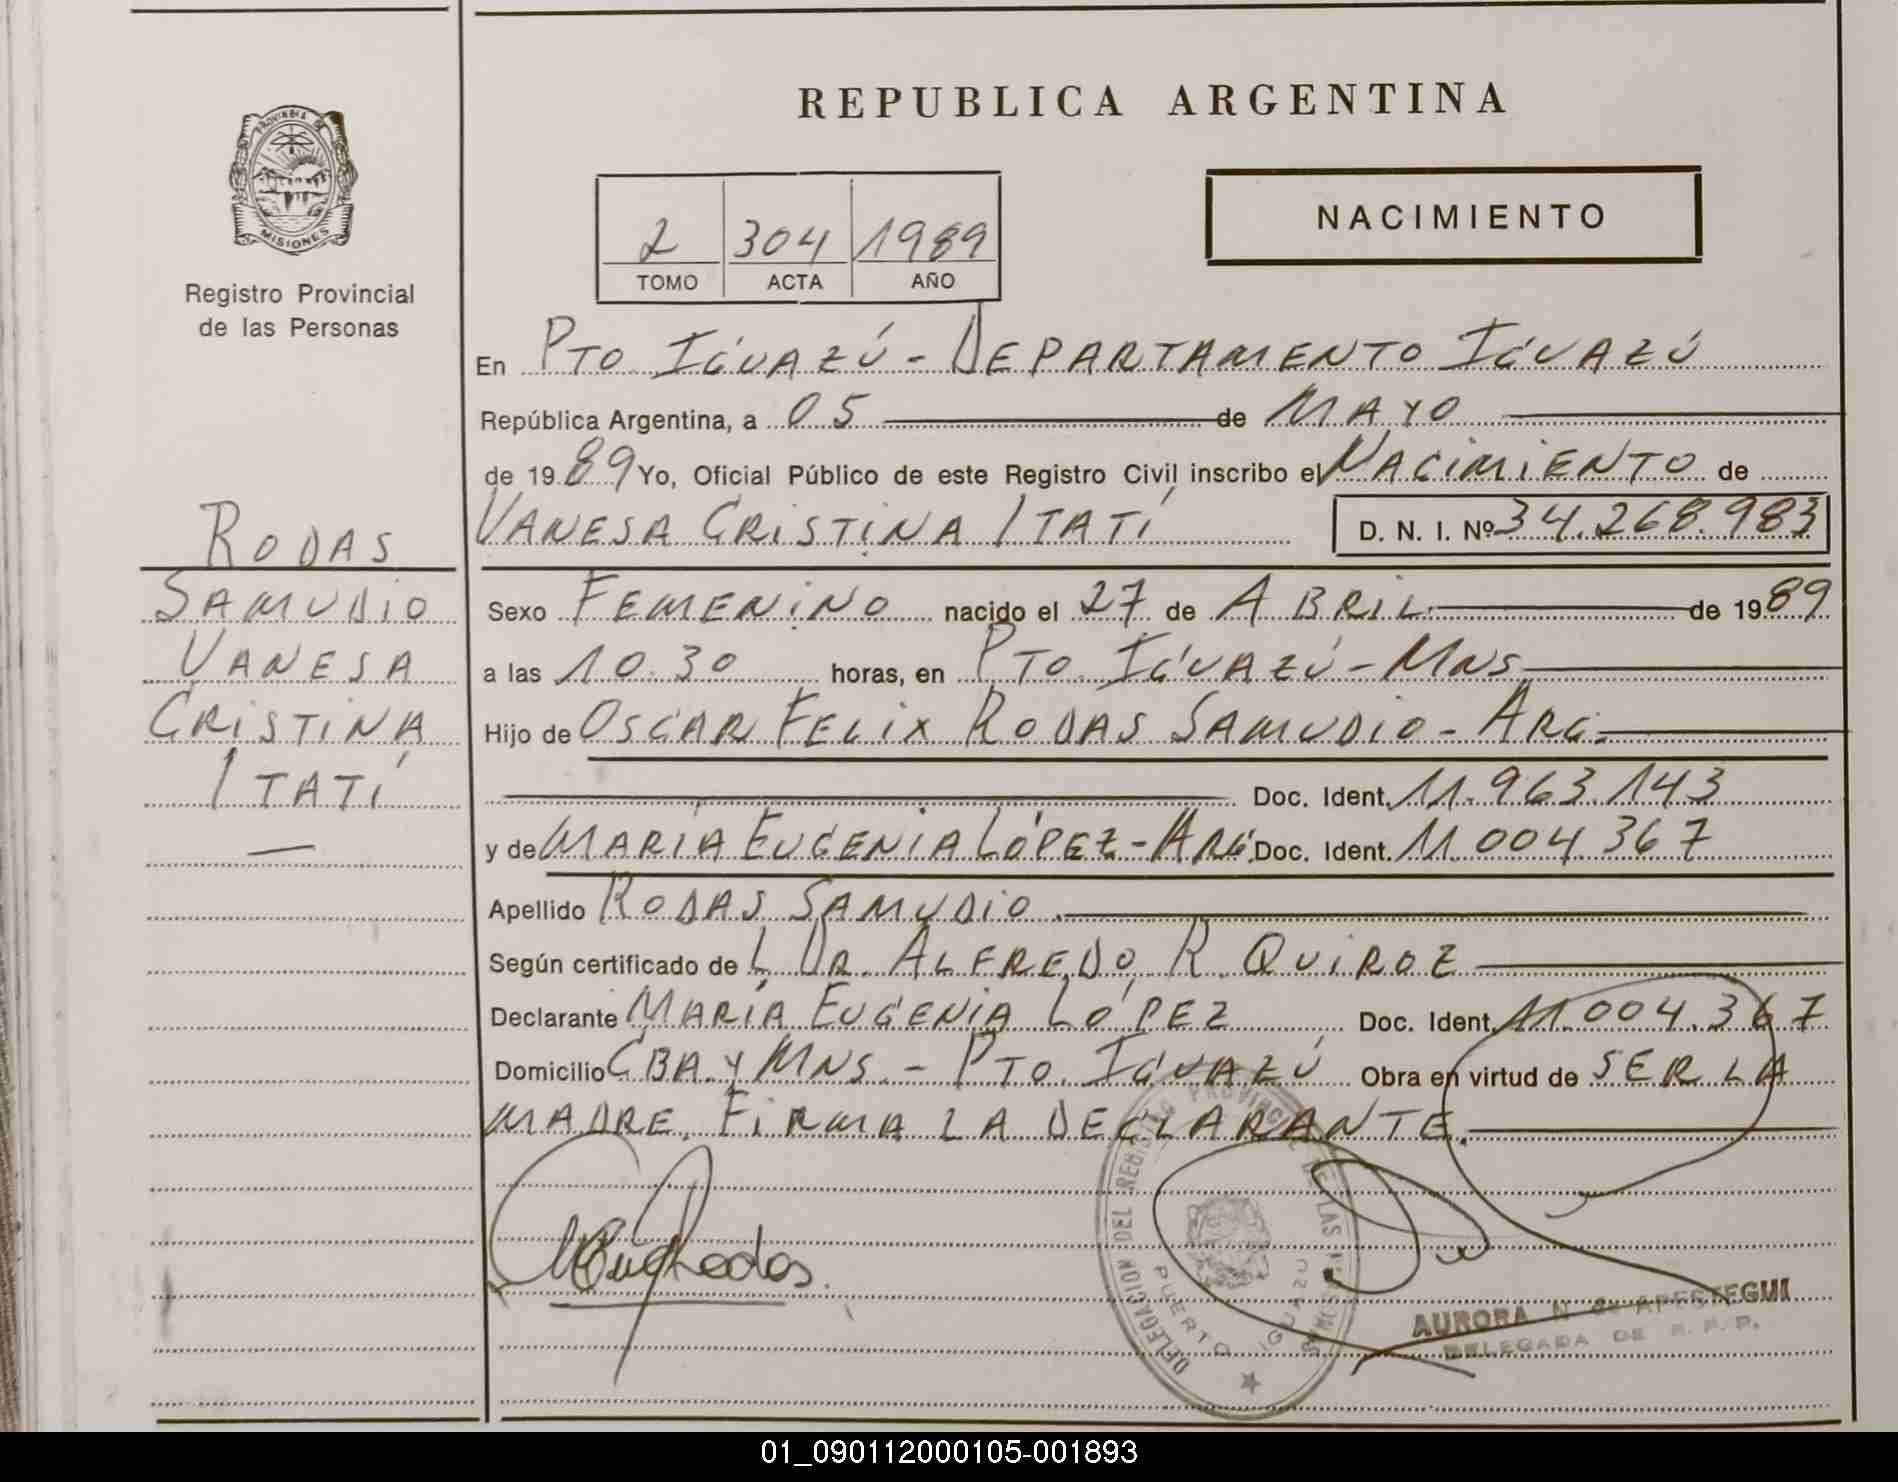 REPUBLICA ARGENTINA
PROVINCIA DE
MISIONES
Registro Provincial
de las Personas
2 304 1989
TOMO ACTA AÑO
NACIMIENTO
En PTO. IGUAZÚ - DEPARTAMENTO IGUAZÚ
República Argentina, a 05 de MAYO
de 1989 Yo, Oficial Público de este Registro Civil inscribo el NACIMIENTO de
VANESA CRISTINA ITATÍ D. N. I. Nº 34.268.983
RODAS
SAMUDIO
VANESA
CRISTINA
ITATÍ
—
Sexo FEMENINO nacido el 27 de ABRIL de 1989
a las 10.30 horas, en PTO. IGUAZÚ - MNS
Hijo de OSCAR FELIX RODAS SAMUDIO - ARG.
Doc. Ident. 11.963.143
y de MARÍA EUGENIA LÓPEZ - ARG. Doc. Ident. 11.004.367
Apellido RODAS SAMUDIO.
Según certificado de L DR. ALFREDO R. QUIROZ
Declarante MARÍA EUGENIA LÓPEZ Doc. Ident. 11.004.367
Domicilio CBA. Y MNS. - PTO. IGUAZÚ Obra en virtud de SER LA
MADRE. FIRMA LA DECLARANTE.
DELEGACION DEL REGISTRO PROVINCIAL DE LAS PERSONAS
PUERTO IGUAZU
AURORA N. de APESTEGUI
DELEGADA DE R. P. P.
01_090112000105-001893